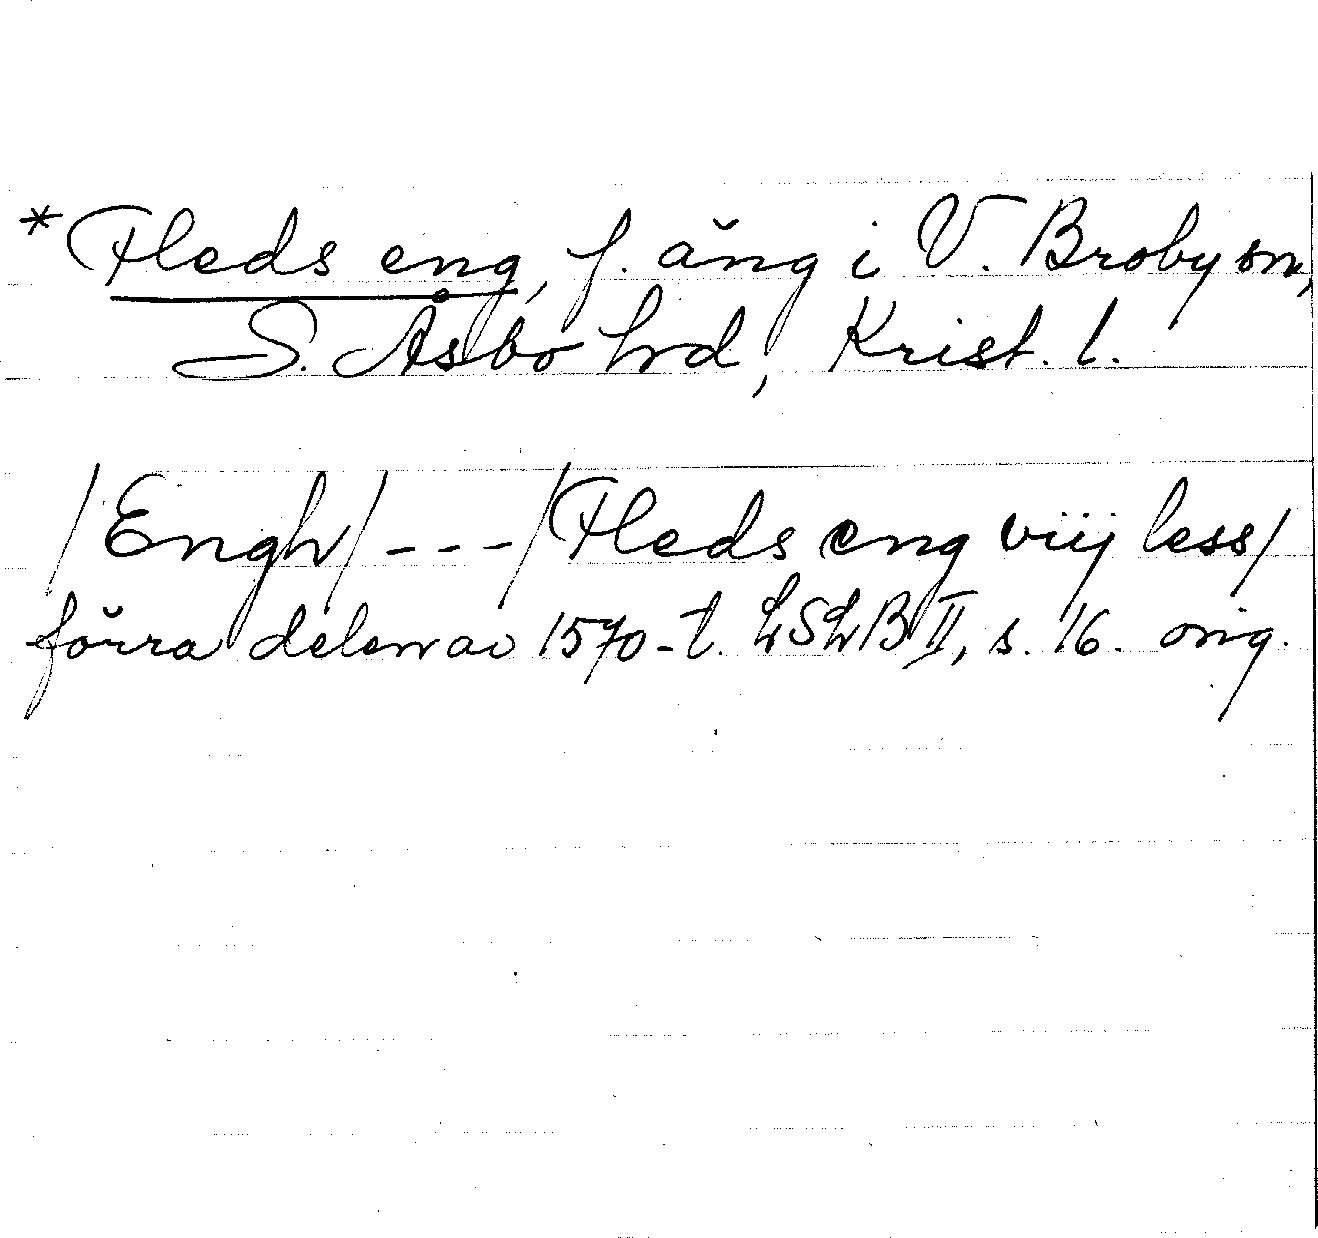 *Fleds eng, f. äng i V. Broby sn,
S. Åsbo hrd, Krist. l.
/Engh/ --- /Fleds eng viij less/
förra delen av 1570-t. LSLB II, s. 16. orig.